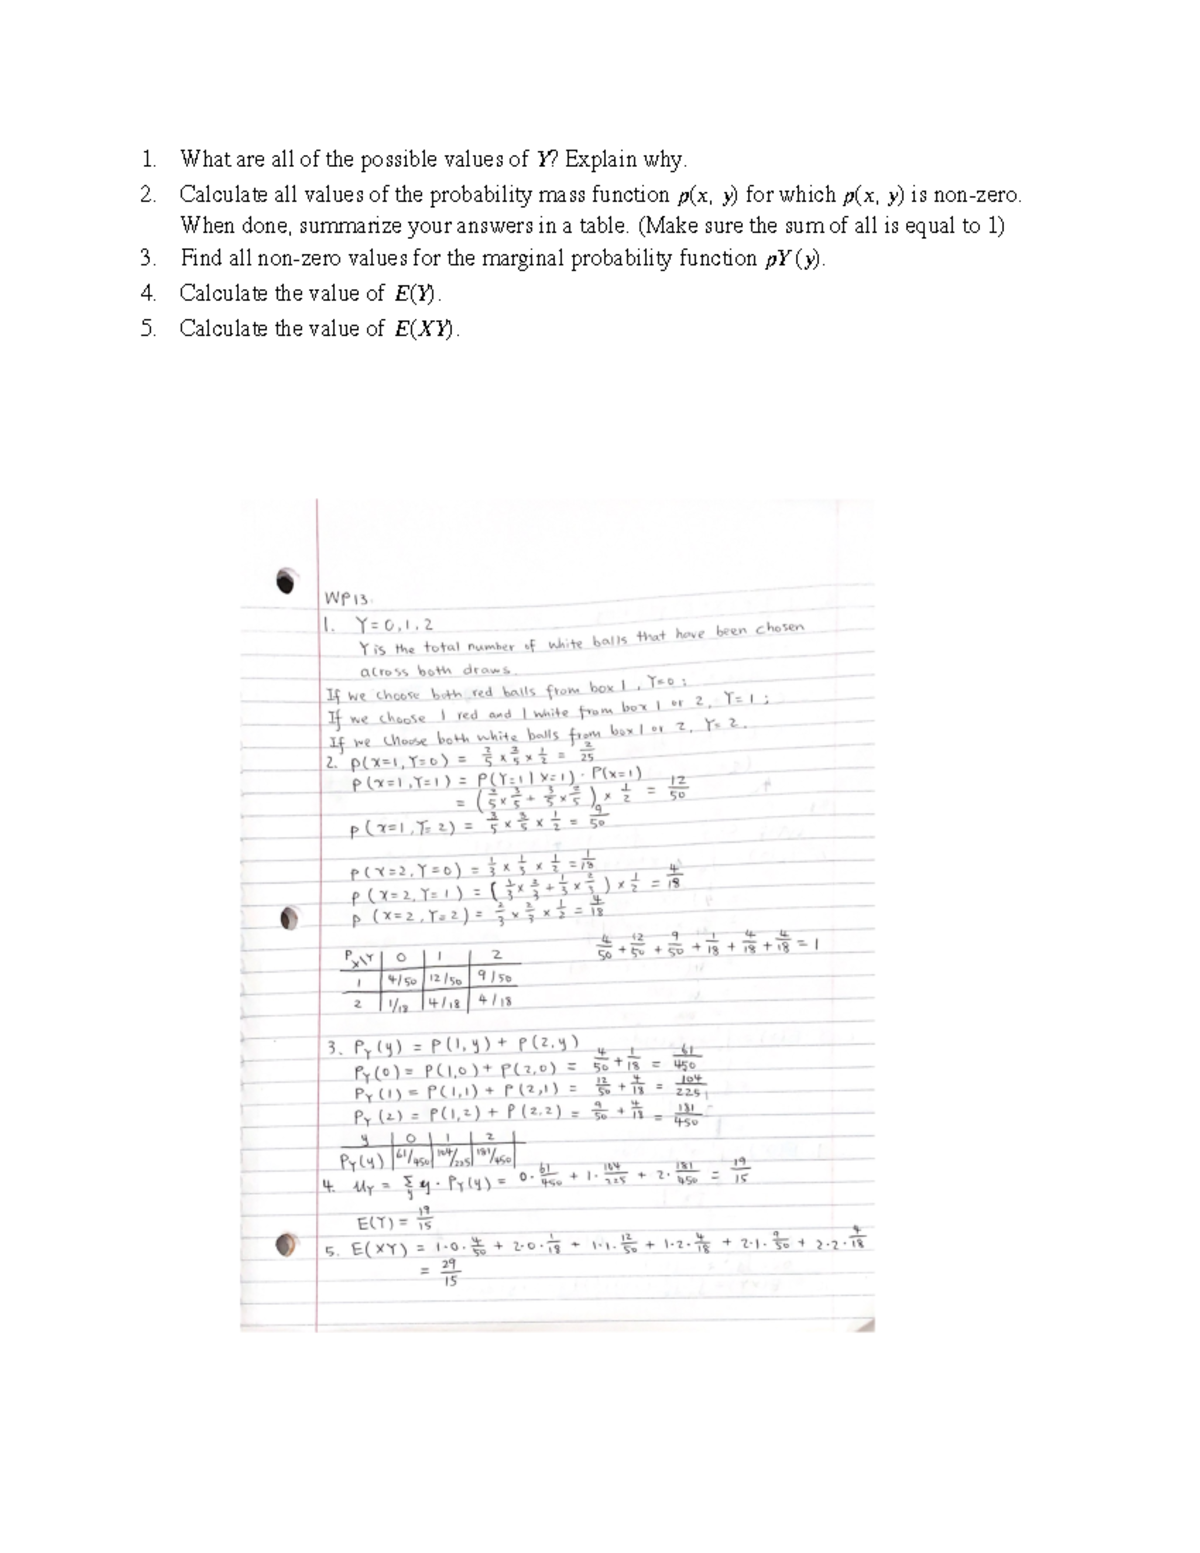 1. What are all of the possible values of Y? Explain why.
2. Calculate all values of the probability mass function p(x, y) for which p(x, y) is non-zero.
When done, summarize your answers in a table. (Make sure the sum of all is equal to 1)
3. Find all non-zero values for the marginal probability function pY (y).
4. Calculate the value of E(Y).
5. Calculate the value of E(XY).
WP13.
1. Y = 0, 1, 2
Y is the total number of white balls that have been chosen
across both draws.
If we choose both red balls from box 1, Y=0;
If we choose 1 red and 1 white from box 1 or 2, Y=1;
If we choose both white balls from box 1 or 2, Y=2.
2. P(x=1, Y=0) = 2/5 × 2/5 × 1/2 = 2/25
P(x=1, Y=1) = P(Y=1 | X=1) · P(x=1)
= (2/5 × 3/5 + 3/5 × 2/5) × 1/2 = 12/50
P(x=1, Y=2) = 3/5 × 3/5 × 1/2 = 9/50
P(x=2, Y=0) = 1/3 × 1/3 × 1/2 = 1/18
P(x=2, Y=1) = (1/3 × 2/3 + 1/3 × 2/3) × 1/2 = 4/18
P(x=2, Y=2) = 2/3 × 2/3 × 1/2 = 4/18
4/50 + 12/50 + 9/50 + 1/18 + 4/18 + 4/18 = 1
P X\Y 0 1 2
1 4/50 12/50 9/50
2 1/18 4/18 4/18
3. PY(y) = P(1,y) + P(2,y)
PY(0) = P(1,0) + P(2,0) = 4/50 + 1/18 = 61/450
PY(1) = P(1,1) + P(2,1) = 12/50 + 4/18 = 104/225
PY(2) = P(1,2) + P(2,2) = 9/50 + 4/18 = 181/450
y 0 1 2
PY(y) 61/450 104/225 181/450
4. μY = Σy y · PY(y) = 0 · 61/450 + 1 · 104/225 + 2 · 181/450 = 19/15
E(Y) = 19/15
5. E(XY) = 1·0· 4/50 + 2·0· 1/18 + 1·1· 12/50 + 1·2· 4/18 + 2·1· 9/50 + 2·2· 4/18
= 29/15